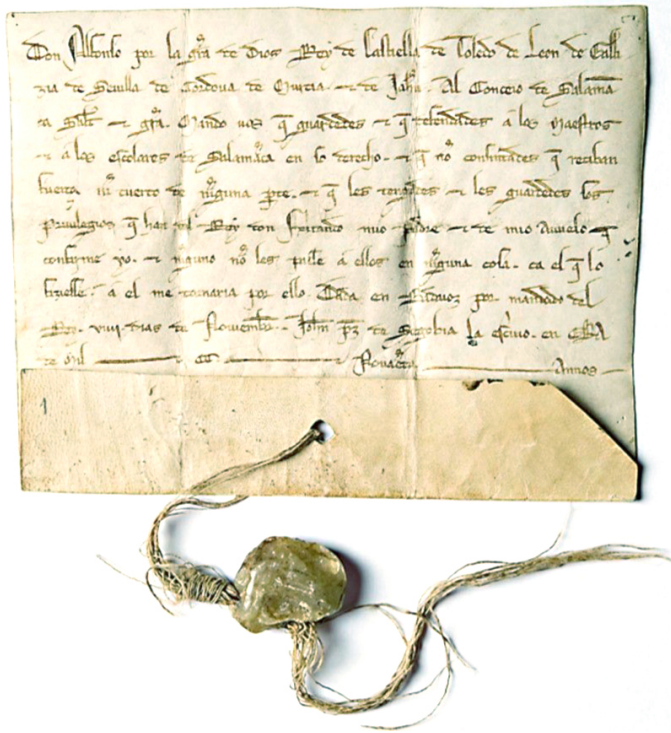 Don Alfonso por la gr̃a de Dios Rey de Castiella de Toledo de Leon de Galli
zia de Seuilla de Cordoua de Murcia ⁊ de Jahñ. Al Conceio de Salamã
ca Salt̃ ⁊ gr̃a. Mando uos q̃ guardedes ⁊ q̃ defendades a los Maestros
⁊ a los escolares de Salamãca en so derecho. ⁊ q̃ nõ consintades q̃ reciban
fuerça nĩ tuerto de nĩguna pte. ⁊ q̃ les ⁊ les guardedes sos
priuilegios q̃ han del Rey don Ferrando mio padre ⁊ de mio Auuelo q̃
confirme yo. ⁊ niguno nõ les en nĩguna cosa. ca el q̃ lo
fiziesse. a el me tornaria por ello. Dada en por mandado del
Rey. dias de Nouiembr̃. Johñ pz de Segobia la escriuio. en ERA
de mil CC Nouaẽta Annos